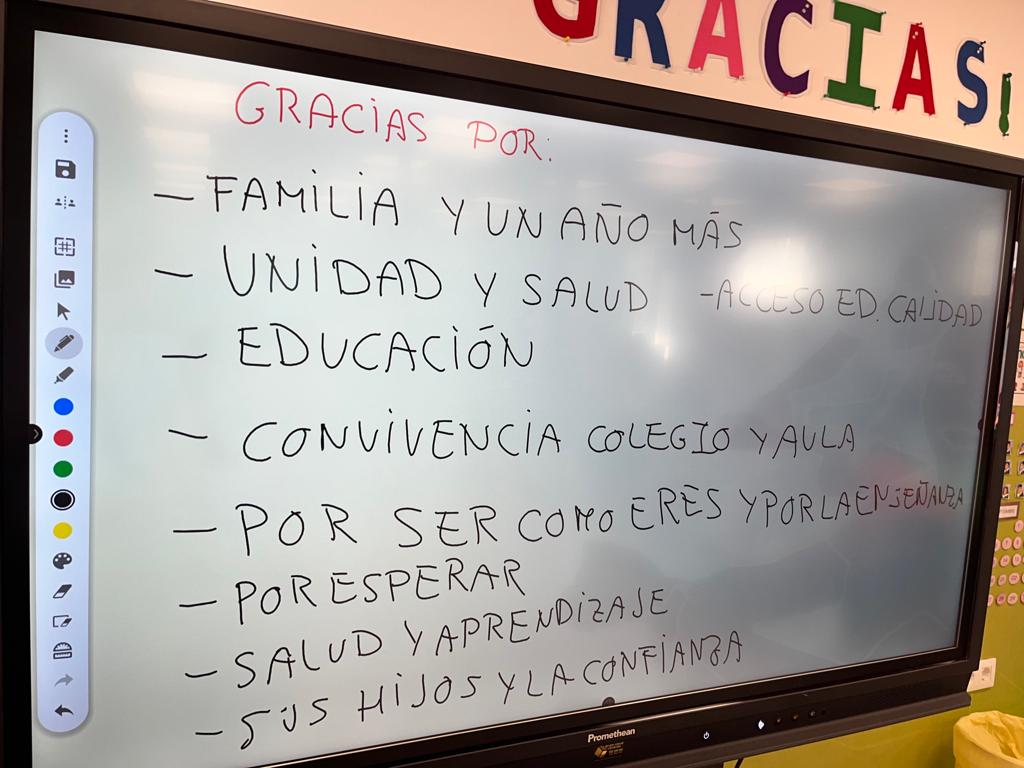 GRACIAS!
GRACIAS POR:
- FAMILIA Y UN AÑO MÁS
- UNIDAD Y SALUD - ACCESO ED. CALIDAD
- EDUCACIÓN
- CONVIVENCIA COLEGIO Y AULA
- POR SER COMO ERES Y POR LA ENSEÑANZA
- POR ESPERAR
- SALUD Y APRENDIZAJE
- SUS HIJOS Y LA CONFIANZA
Promethean